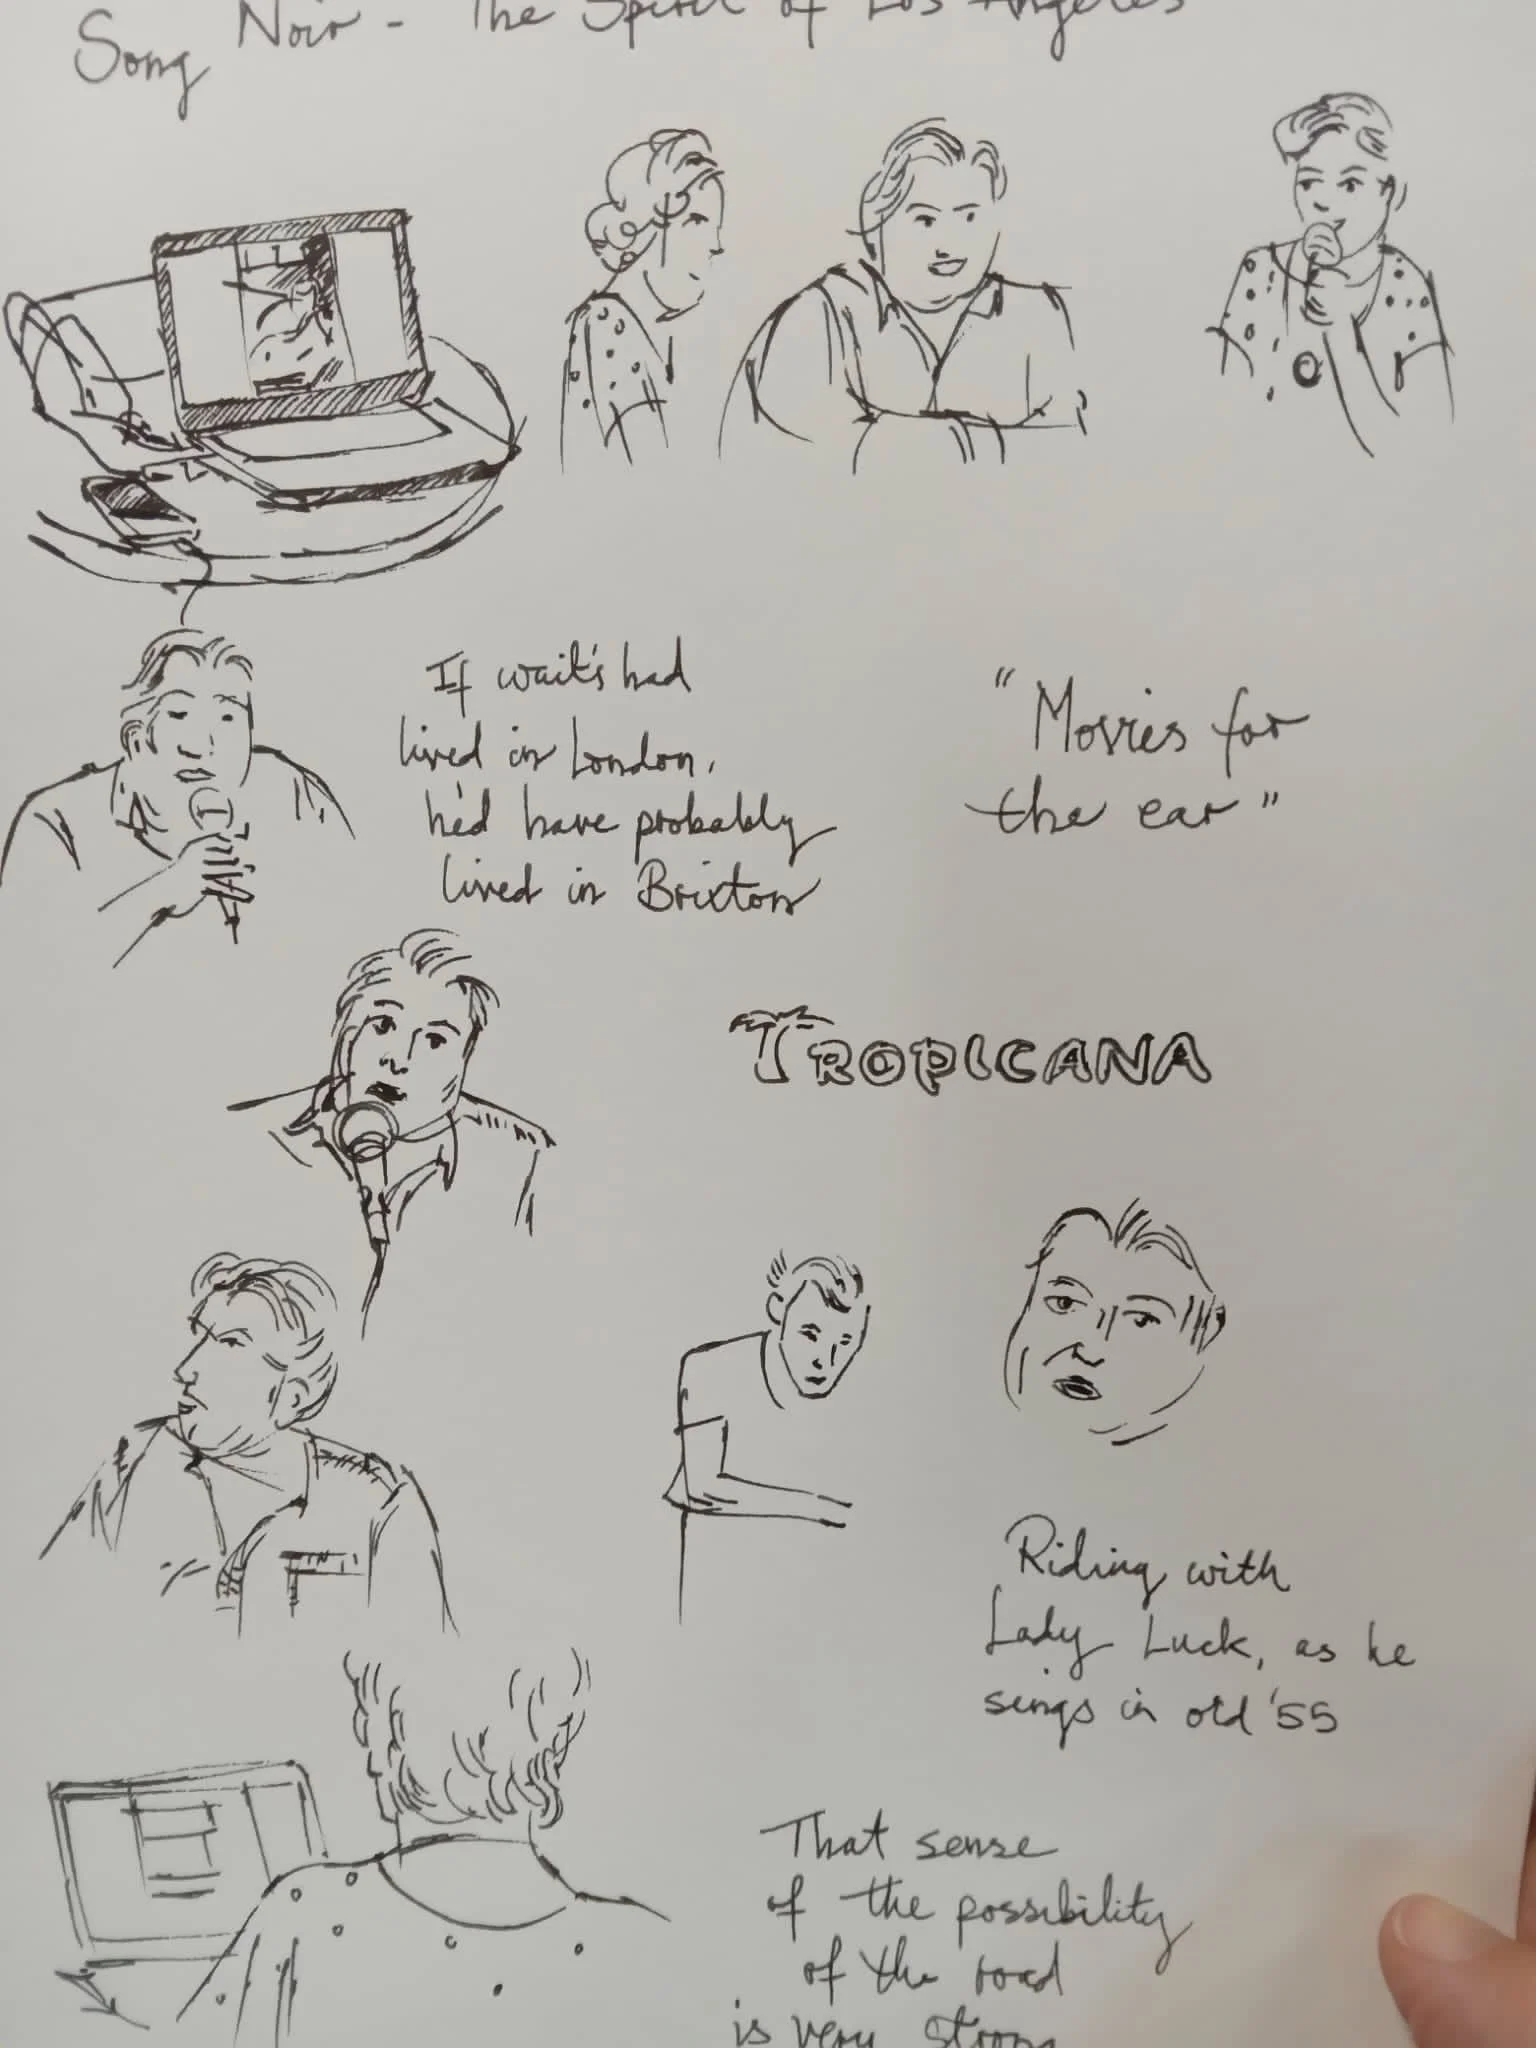 Song Noir - The Spirit of Los Angeles
If wait's had
lived in London,
he'd have probably
lived in Brixton
"Movies for
the ear"
TROPICANA
Riding with
Lady Luck, as he
sings in old '55
That sense
of the possibility
of the road
is very strong